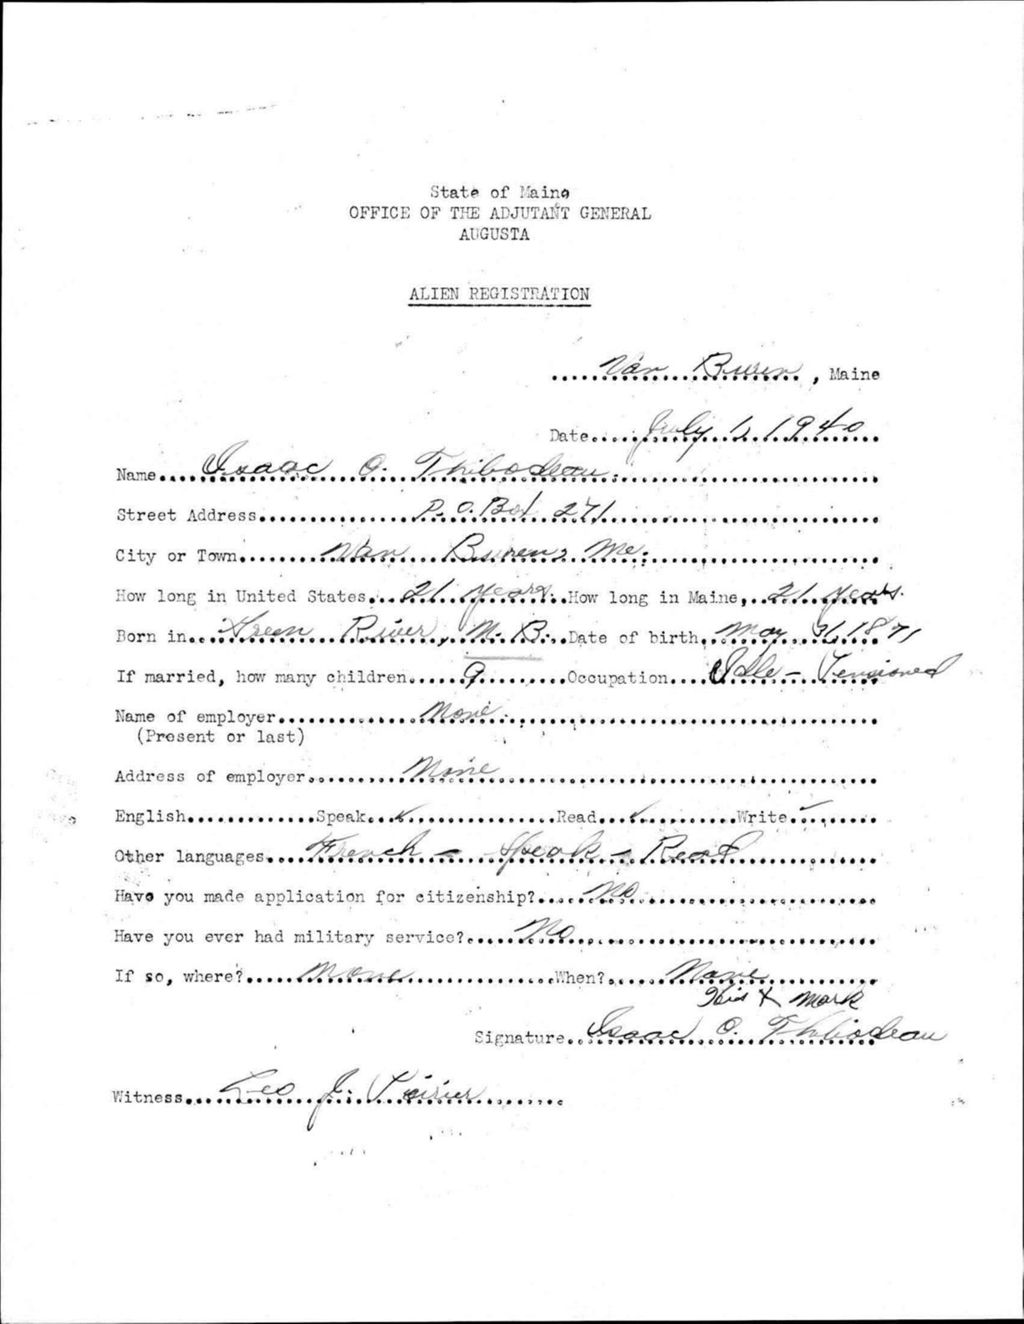 State of Maine
OFFICE OF THE ADJUTANT GENERAL
AUGUSTA
ALIEN REGISTRATION
Van Buren, Maine
Date July 1, 1940
Name Isaac O. Thibodeau.
Street Address P. O. Box 271
City or Town Van Buren, Me.
How long in United States 21 years. How long in Maine, 21 years.
Born in Green River, N. B. Date of birth, May 31, 1871
If married, how many children 9 Occupation Idle - Pensioned
Name of employer None
(Present or last)
Address of employer None
English Speak ✓ Read ✓ Write -
Other languages French - Speak - Read
Have you made application for citizenship? No
Have you ever had military service? No
If so, where? None When? None
His X Mark
Signature Isaac O. Thibodeau
Witness Leo J. Poirier